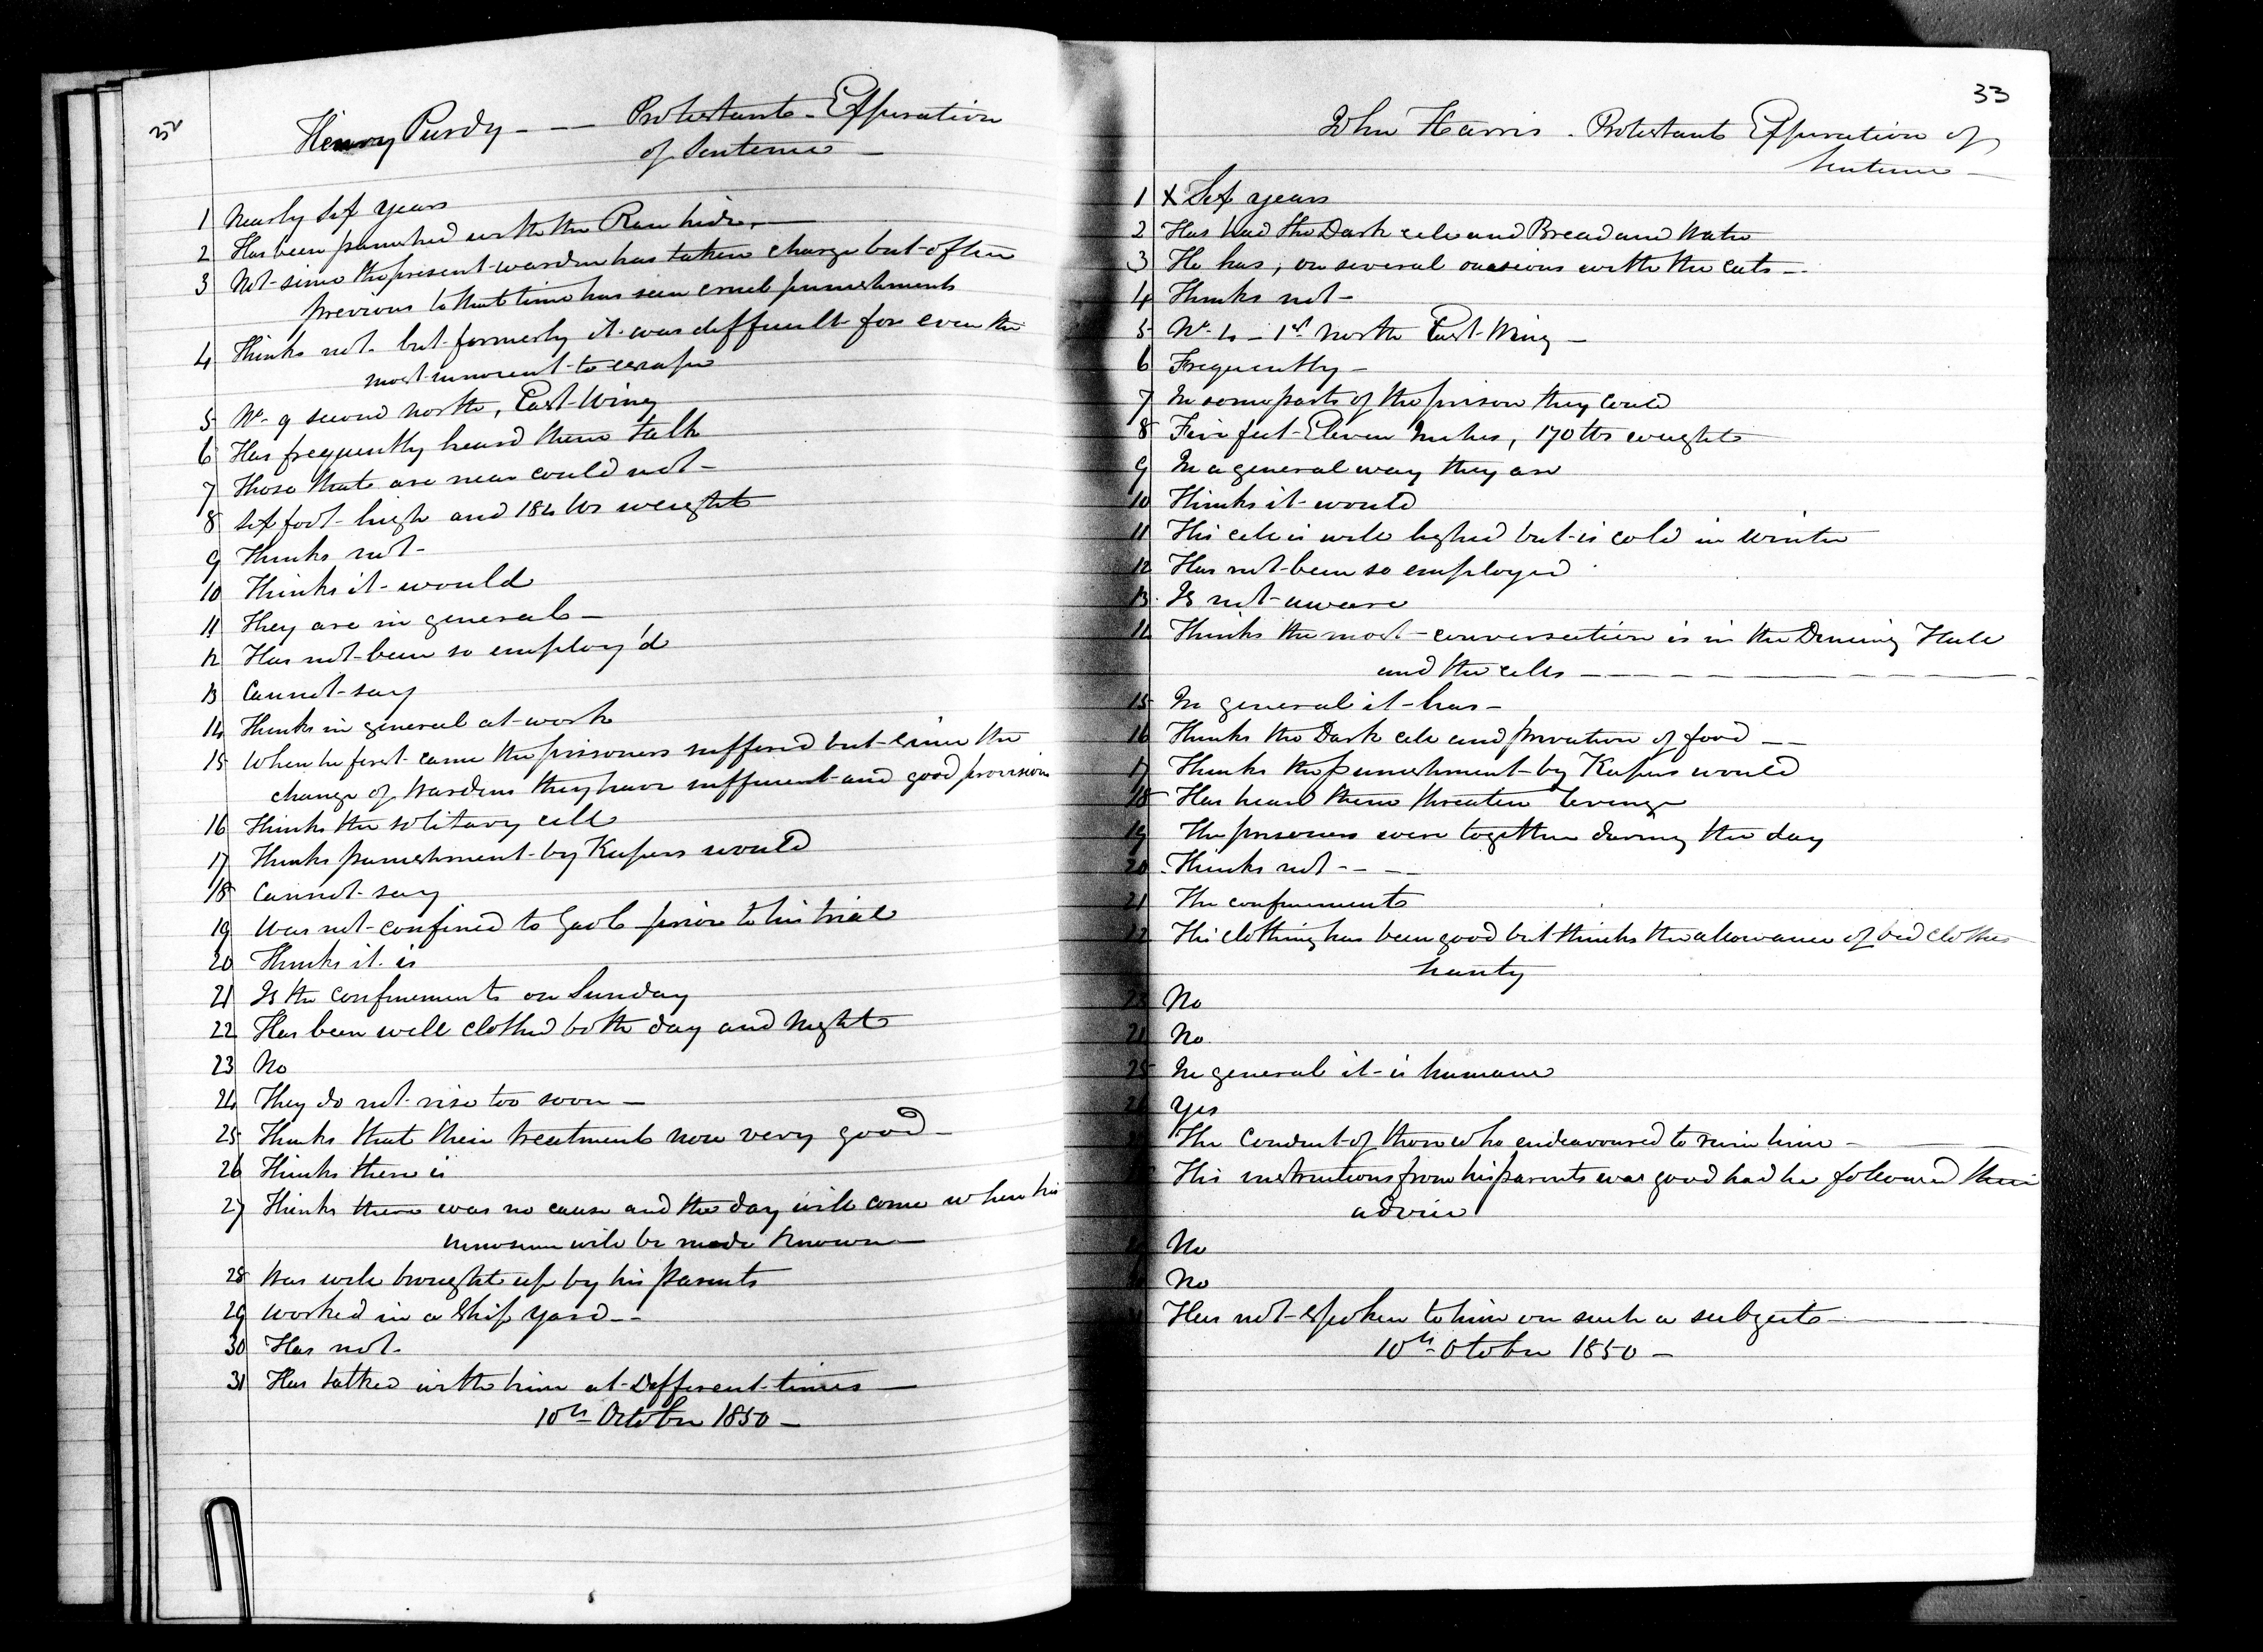 32
Henry Purdy - - - Protestant - Expiration
of Sentence -
1 Nearly six years
2 Has been punished with the Raw hide. -
3 Not since the present warden has taken charge but often
previous to that time has seen cruel punishments
4 Thinks not. but formerly it was difficult for even the
most innocent to escape
5 No. 9 second North, East Wing
6 Has frequently heard them talk
7 Those that are near could not -
8 Six foot high and 184 lbs weight
9 Thinks not -
10 Thinks it would
11 They are in general -
12 Has not been so employ'd
13 Cannot say
14 Thinks in general at work
15 When he first came the prisoners suffered but since the
change of Wardens they have sufficient and good provision
16 Thinks the solitary cell
17 Thinks punishment by Keepers would
18 Cannot say
19 Was not confined to Gaol prior to his trial
20 Thinks it is
21 Is the confinement on Sunday
22 Has been well clothed both day and Night
23 No
24 They do not rise too soon -
25 Thinks that their treatment now very good -
26 Thinks there is
27 Thinks there was no cause and the day will come when his
innocence will be made known -
28 Was well brought up by his parents
29 Worked in a Ship Yard - -
30 Has not -
31 Has talked with him at Different times -
10th October 1850 -
33
John Harris - Protestant Expiration of
Sentence -
1 x Six years
2 Has had the Dark cell and Bread and Water
3 He has, on several occasions with the cats - -
4 Thinks not -
5 No. 4 - 1st North East Wing -
6 Frequently -
7 In some parts of the prison they could
8 Five feet Eleven Inches, 170 lbs weight
9 In a general way they are
10 Thinks it would
11 His cell is well lighted but is cold in Winter
12 Has not been so employed
13 Is not aware
14 Thinks the most conversation is in the Dineing Hall
and the cells - - - -
15 In general it has -
16 Thinks the Dark cell and privation of food - -
17 Thinks the punishment by Keepers would
18 Has heard them threaten revenge
19 The prisoners were together during the day
20 Thinks not - - -
21 The confinement
22 His clothing has been good but thinks the allowance of bed clothes
Scanty
23 No
24 No
25 In general it is humane
26 Yes
The Conduct of those who endeavoured to ruin him -
His instructions from his parents was good had he followed their
advice
No
No
Has not spoken to him on such a subject -
10th Otober 1850 -